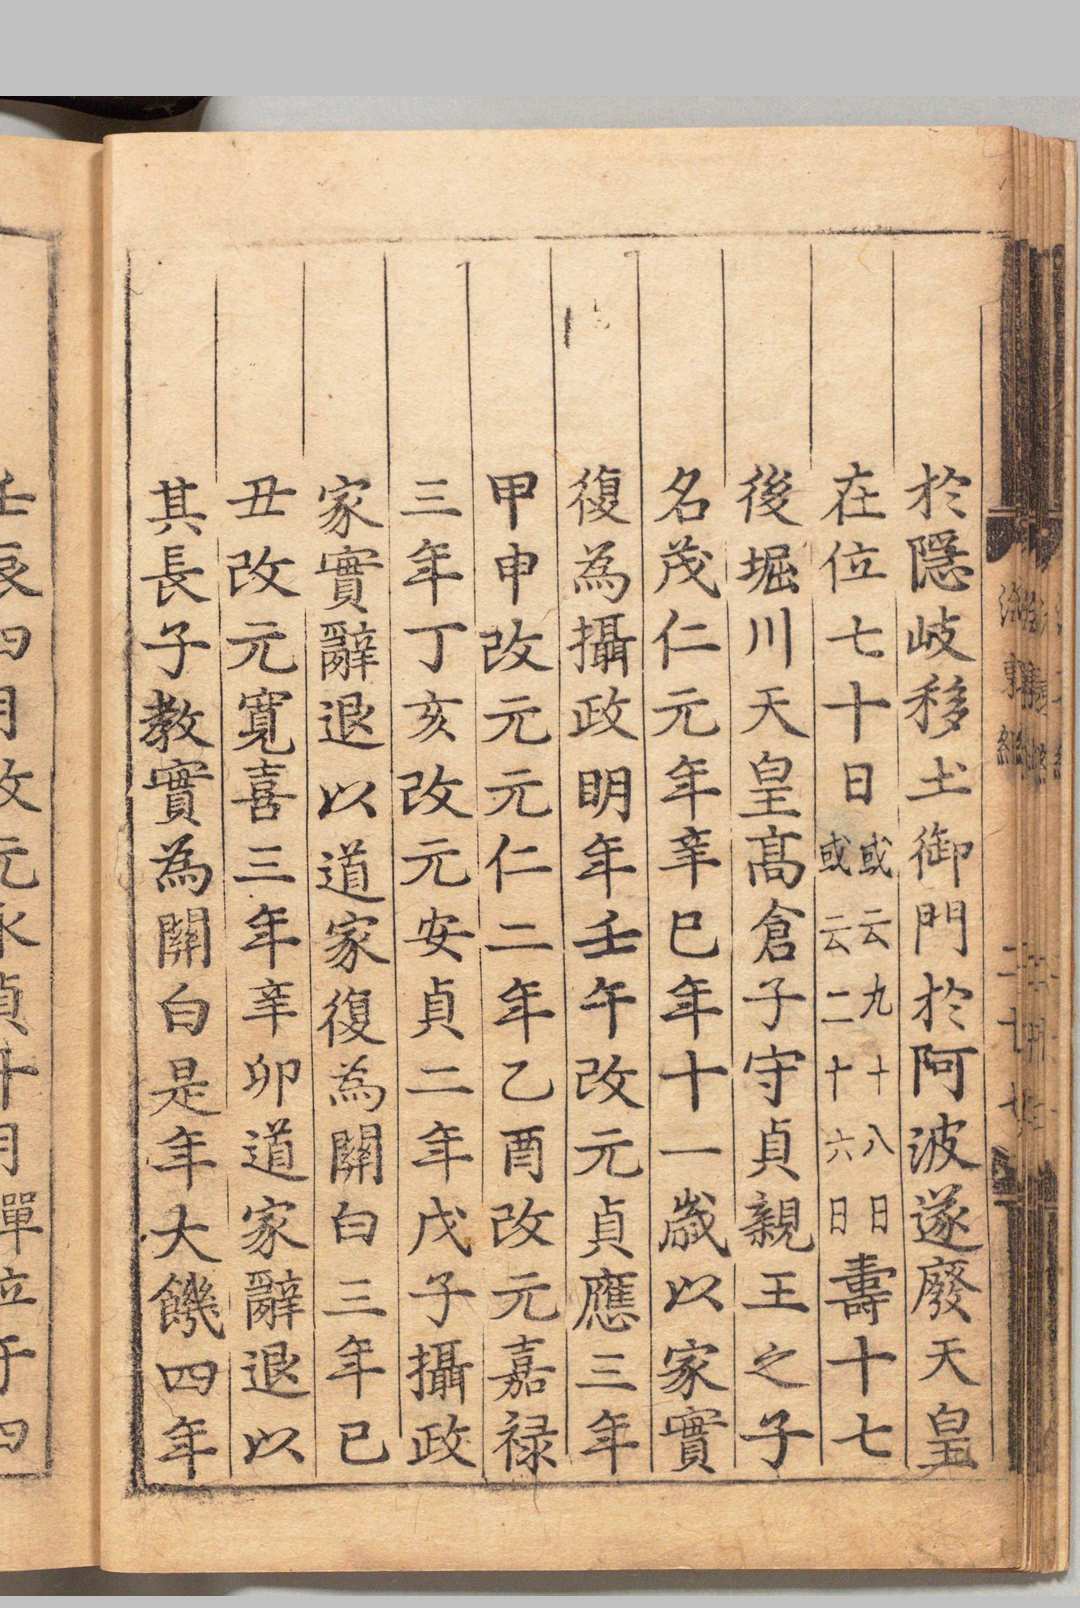 於隱岐移土御門於阿波遂廢天皇
在位七十日或云九十八日或云二十六日壽十七
後堀川天皇高倉子守貞親王之子
名茂仁元年辛巳年十一歲以家實
復為攝政明年壬午改元貞應三年
甲申改元元仁二年乙酉改元嘉祿
三年丁亥改元安貞二年戊子攝政
家實辭退以道家復為關白三年己
丑改元寬喜三年辛卯道家辭退以
其長子教實為關白是年大饑四年
壬辰四月改元永貞十月禪位于四